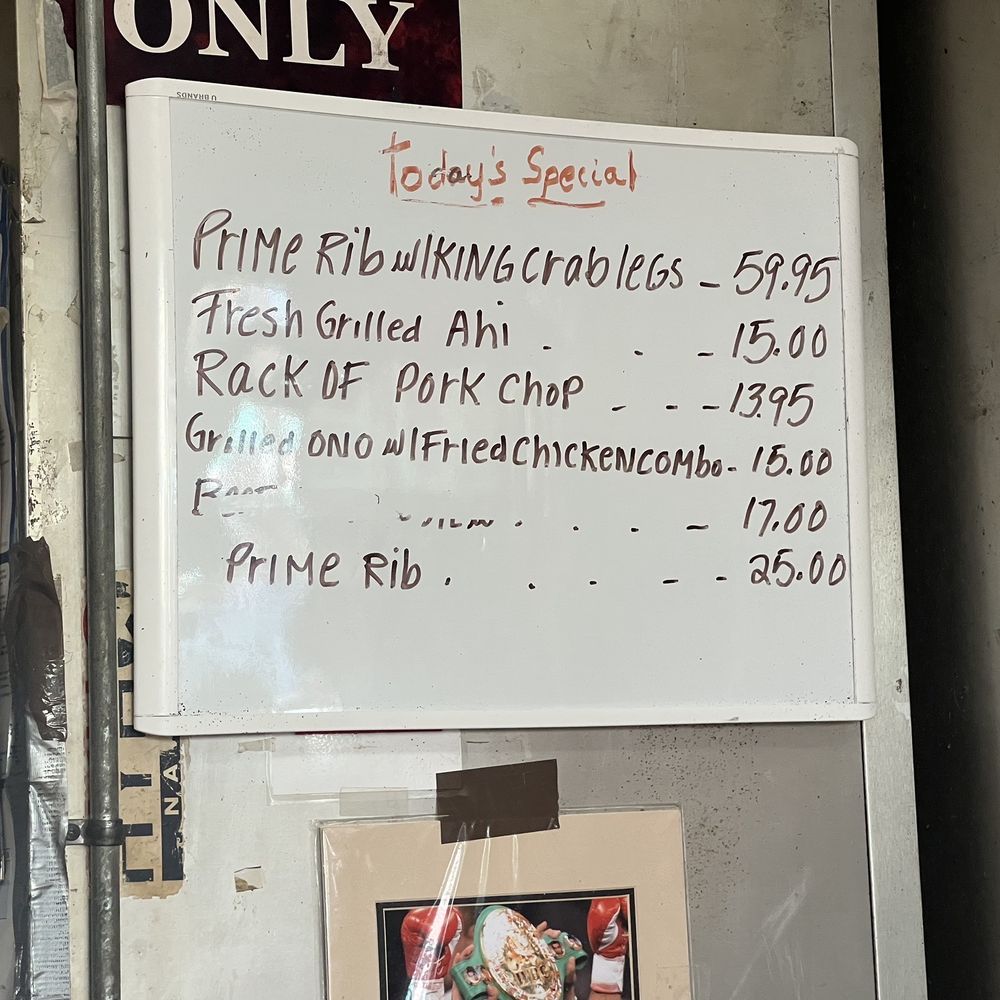 ONLY
U BRANDS
Today's Special
Prime Rib w/King Crab legs - 59.95
Fresh Grilled Ahi . . - 15.00
Rack OF Pork Chop - - - 13.95
Grilled ONO w/Fried Chicken Combo - 15.00
. . . - 17.00
Prime Rib . . . - - 25.00